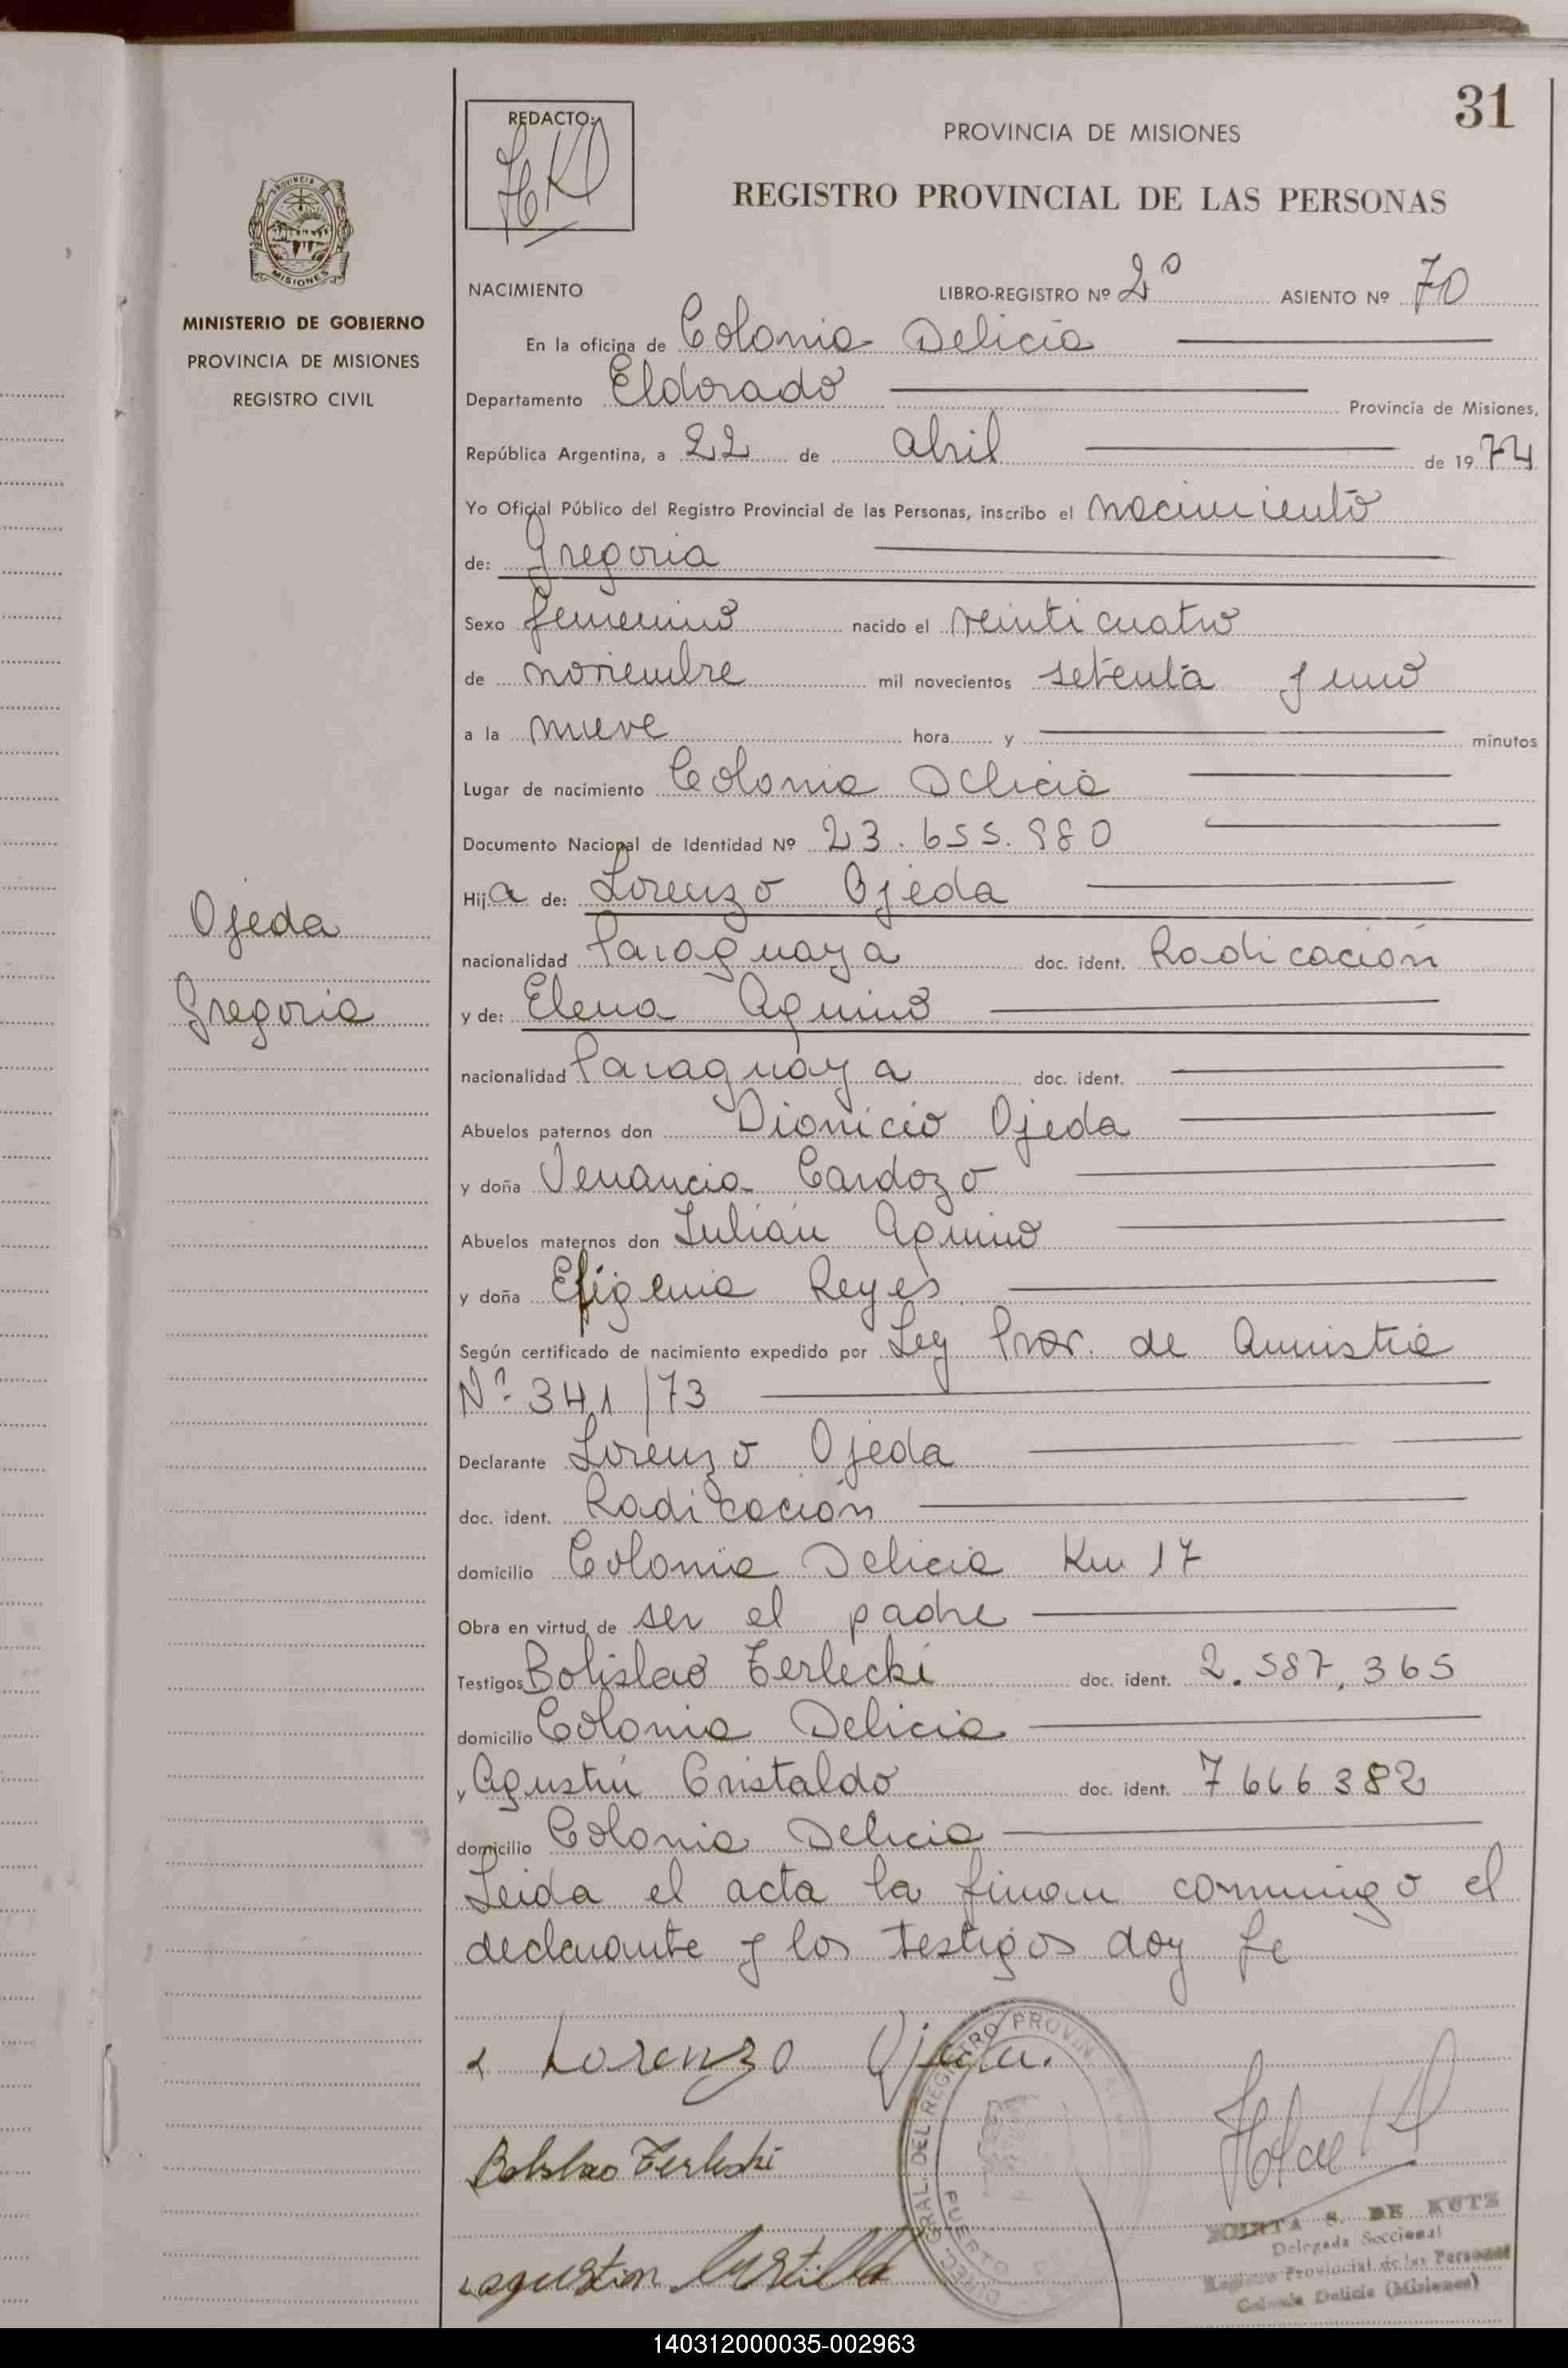 31
REDACTO:
PROVINCIA DE MISIONES
REGISTRO PROVINCIAL DE LAS PERSONAS
PROVINCIA DE
MISIONES
MINISTERIO DE GOBIERNO
PROVINCIA DE MISIONES
REGISTRO CIVIL
NACIMIENTO LIBRO-REGISTRO Nº 2º ASIENTO Nº 70
En la oficina de Colonia Delicia
Departamento Eldorado Provincia de Misiones,
República Argentina, a 22 de abril de 1974
Yo Oficial Público del Registro Provincial de las Personas, inscribo el nacimiento
de: Gregoria
Sexo femenino nacido el veinticuatro
de noviembre mil novecientos setenta y uno
a la nueve hora y minutos
Lugar de nacimiento Colonia Delicia
Documento Nacional de Identidad Nº 23.655.980
Hija de: Lorenzo Ojeda
nacionalidad Paraguaya doc. ident. Radicación
y de: Elena Aquino
nacionalidad Paraguaya doc. ident.
Abuelos paternos don Dionicio Ojeda
y doña Venancia Cardozo
Abuelos maternos don Julián Aquino
y doña Efigenia Reyes
Según certificado de nacimiento expedido por Ley Prov. de Amnistia
Nº 341/73
Declarante Lorenzo Ojeda
doc. ident. Radicación
domicilio Colonia Delicia Km 17
Obra en virtud de ser el padre
Testigos Bolislao Terlecki doc. ident. 2.587.365
domicilio Colonia Delicia
y Agustín Cristaldo doc. ident. 7666382
domicilio Colonia Delicia
Leida el acta la firman conmigo el
declarante y los testigos doy fe
Ojeda
Gregoria
Lorenzo Ojeda.
Bolislao Terlecki
agustin
GRAL. DEL REGISTRO PROVIN
S. DE KUTZ
Delegada Seccional
Registro Provincial de las Personas
Colonia Delicia (Misiones)
140312000035-002963